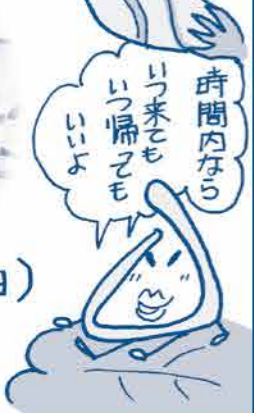 時間内なら
いつ来ても
いつ帰っても
いいよ
)